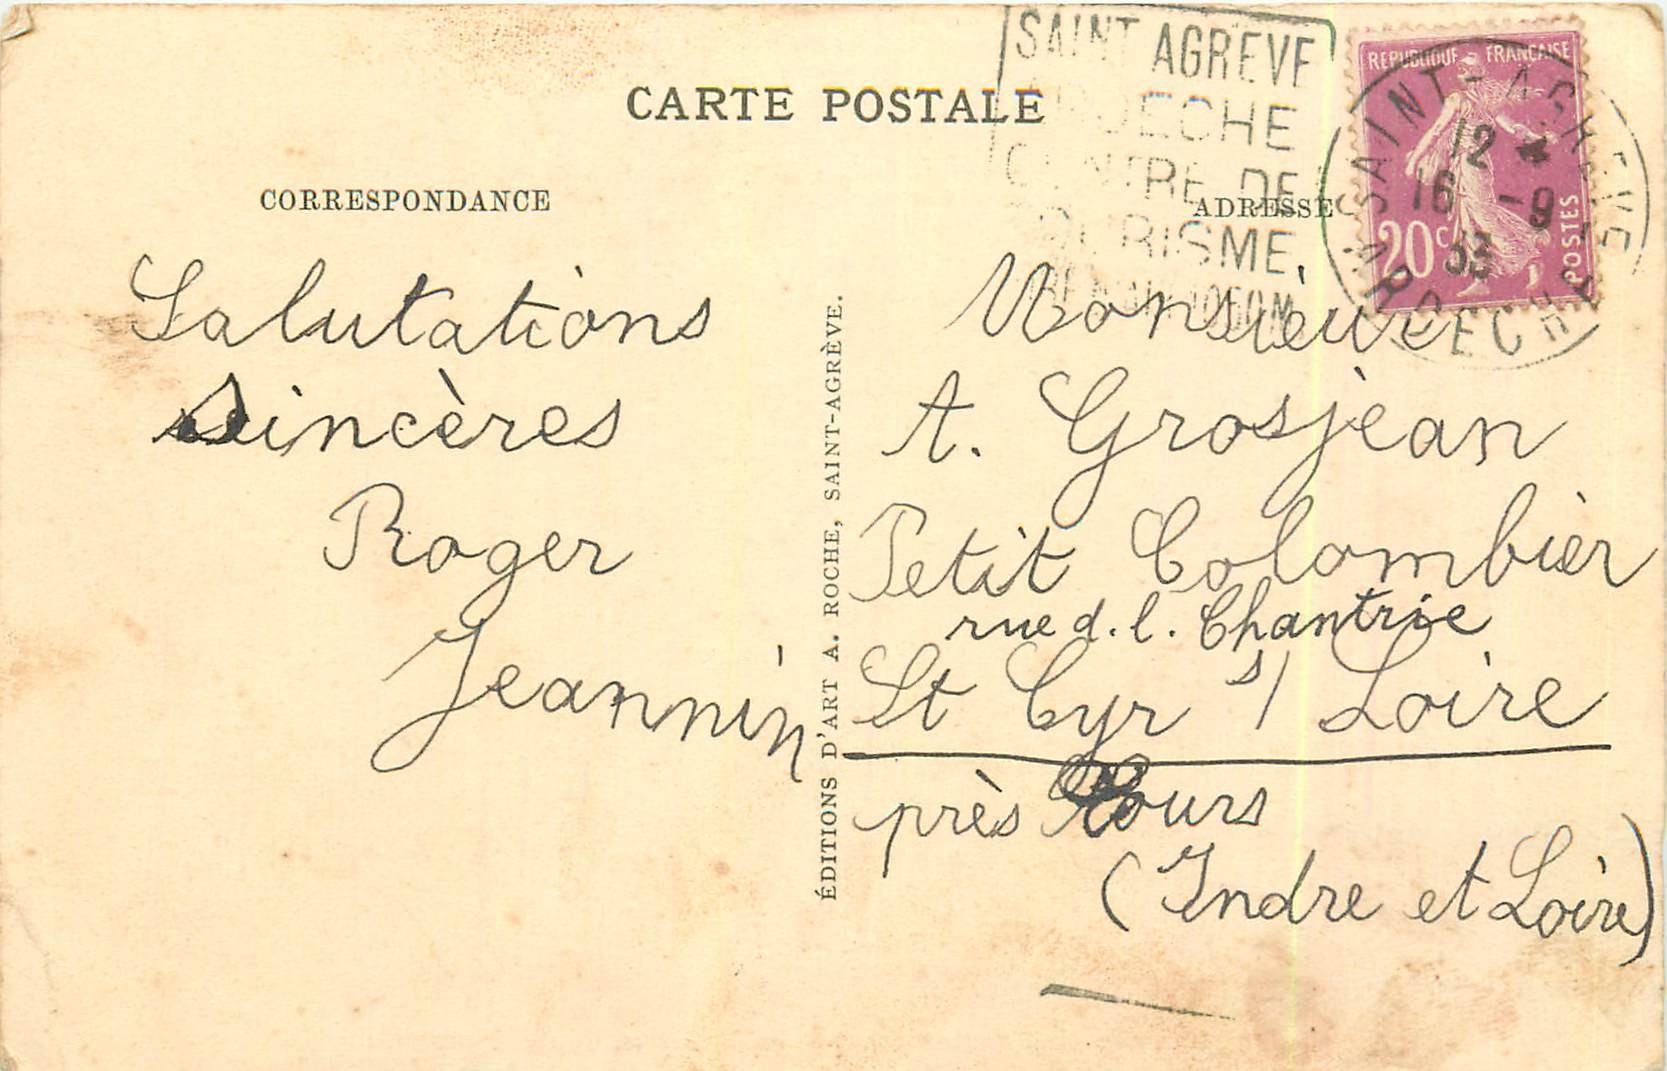 CARTE POSTALE
CORRESPONDANCE
Salutations
sincères
Roger
Jeannin
ÉDITIONS D'ART A. ROCHE, SAINT-AGRÈVE.
SAINT AGREVE
ARDECHE
CENTRE DE
TOURISME
1050M
REPUBLIQUE FRANÇAISE
20c
POSTES
SAINT-AGREVE
12 *
16 -9
33
ARDECHE
ADRESSE
Monsieur
A. Grosjean
Petit Colombier
rue d. l. Chantrie
St Cyr s/ Loire
près Tours
(Indre et Loire)